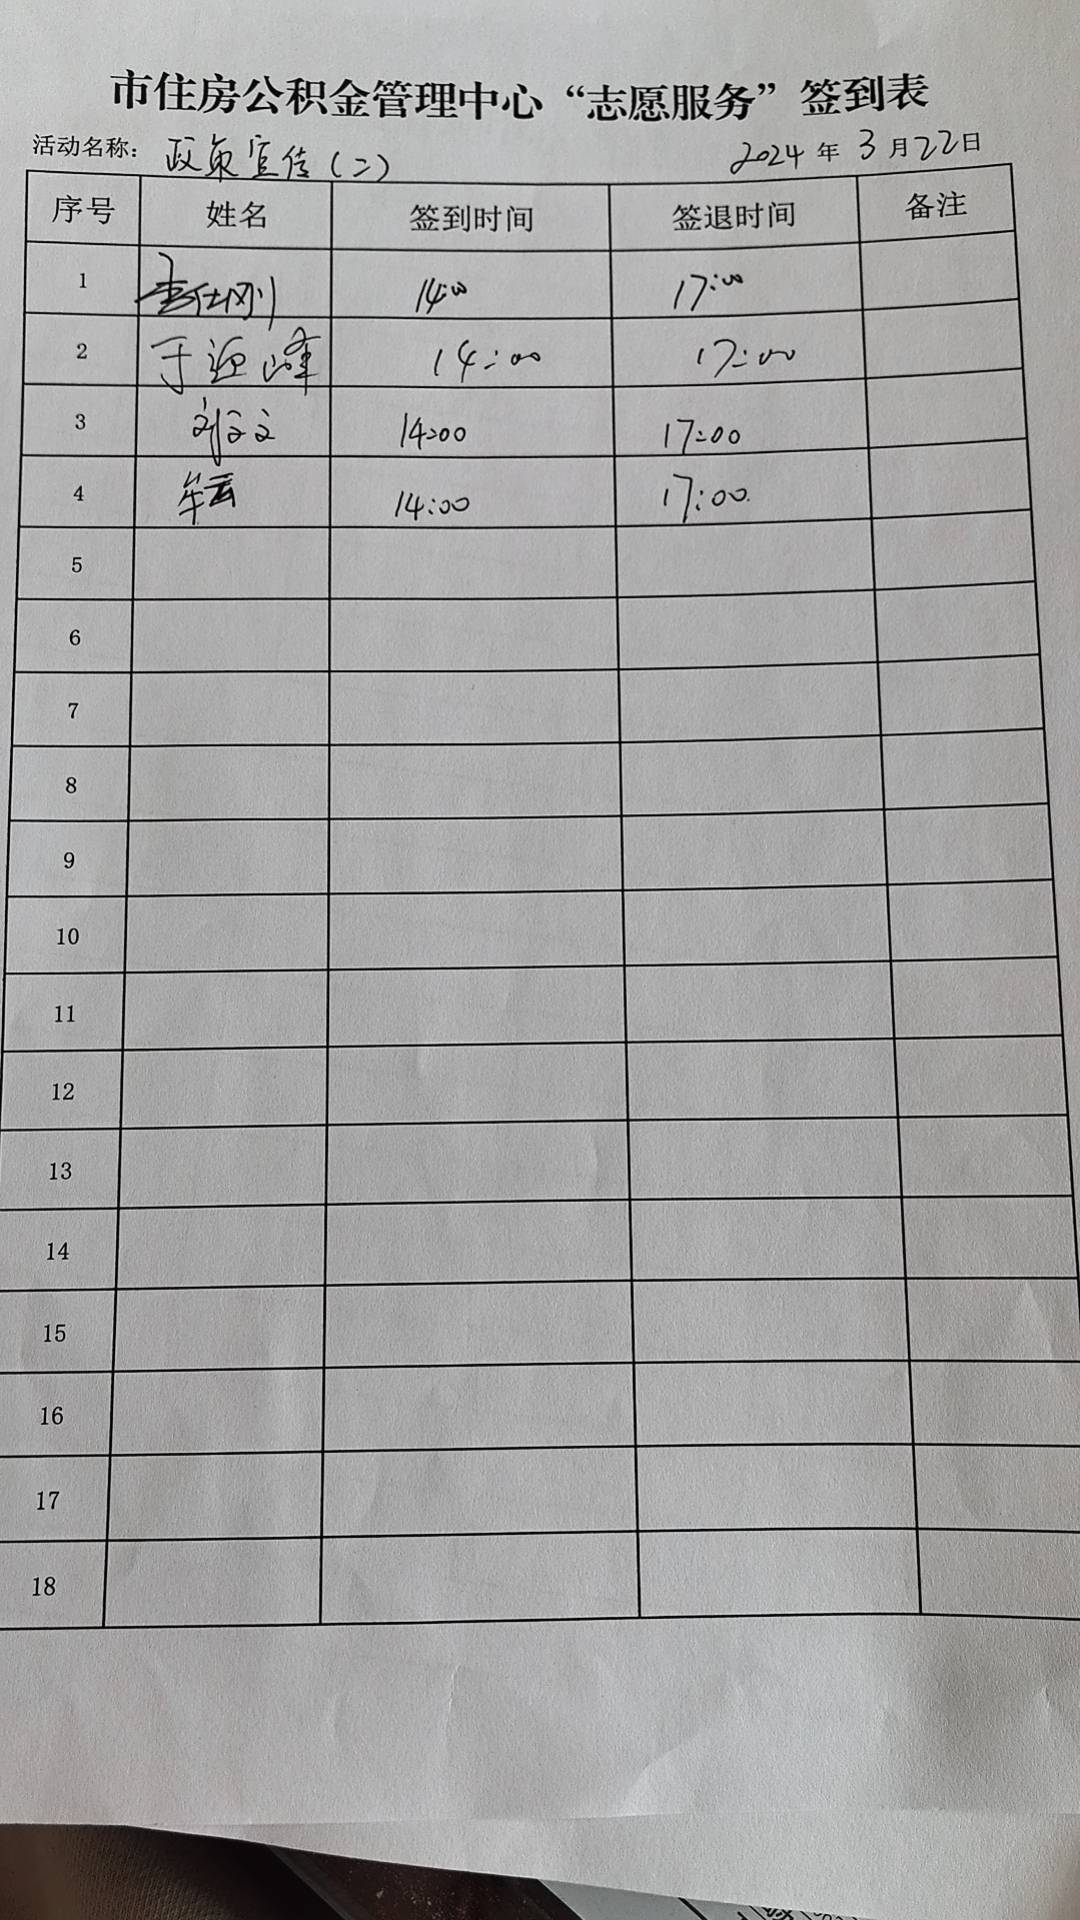 市住房公积金管理中心“志愿服务”签到表
活动名称： 政策宣传（二） 2024 年 3 月 22 日
序号 姓名 签到时间 签退时间 备注
1 李仕刚 14:00 17:00
2 于迎峰 14:00 17:00
3 14:00 17:00
4 牟云 14:00 17:00
5
6
7
8
9
10
11
12
13
14
15
16
17
18